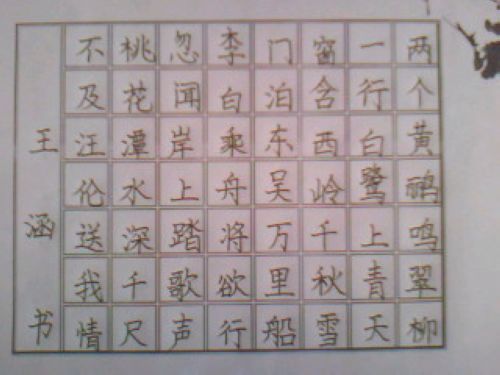 两个黄鹂鸣翠柳
一行白鹭上青天
窗含西岭千秋雪
门泊东吴万里船
李白乘舟将欲行
忽闻岸上踏歌声
桃花潭水深千尺
不及汪伦送我情
王涵书